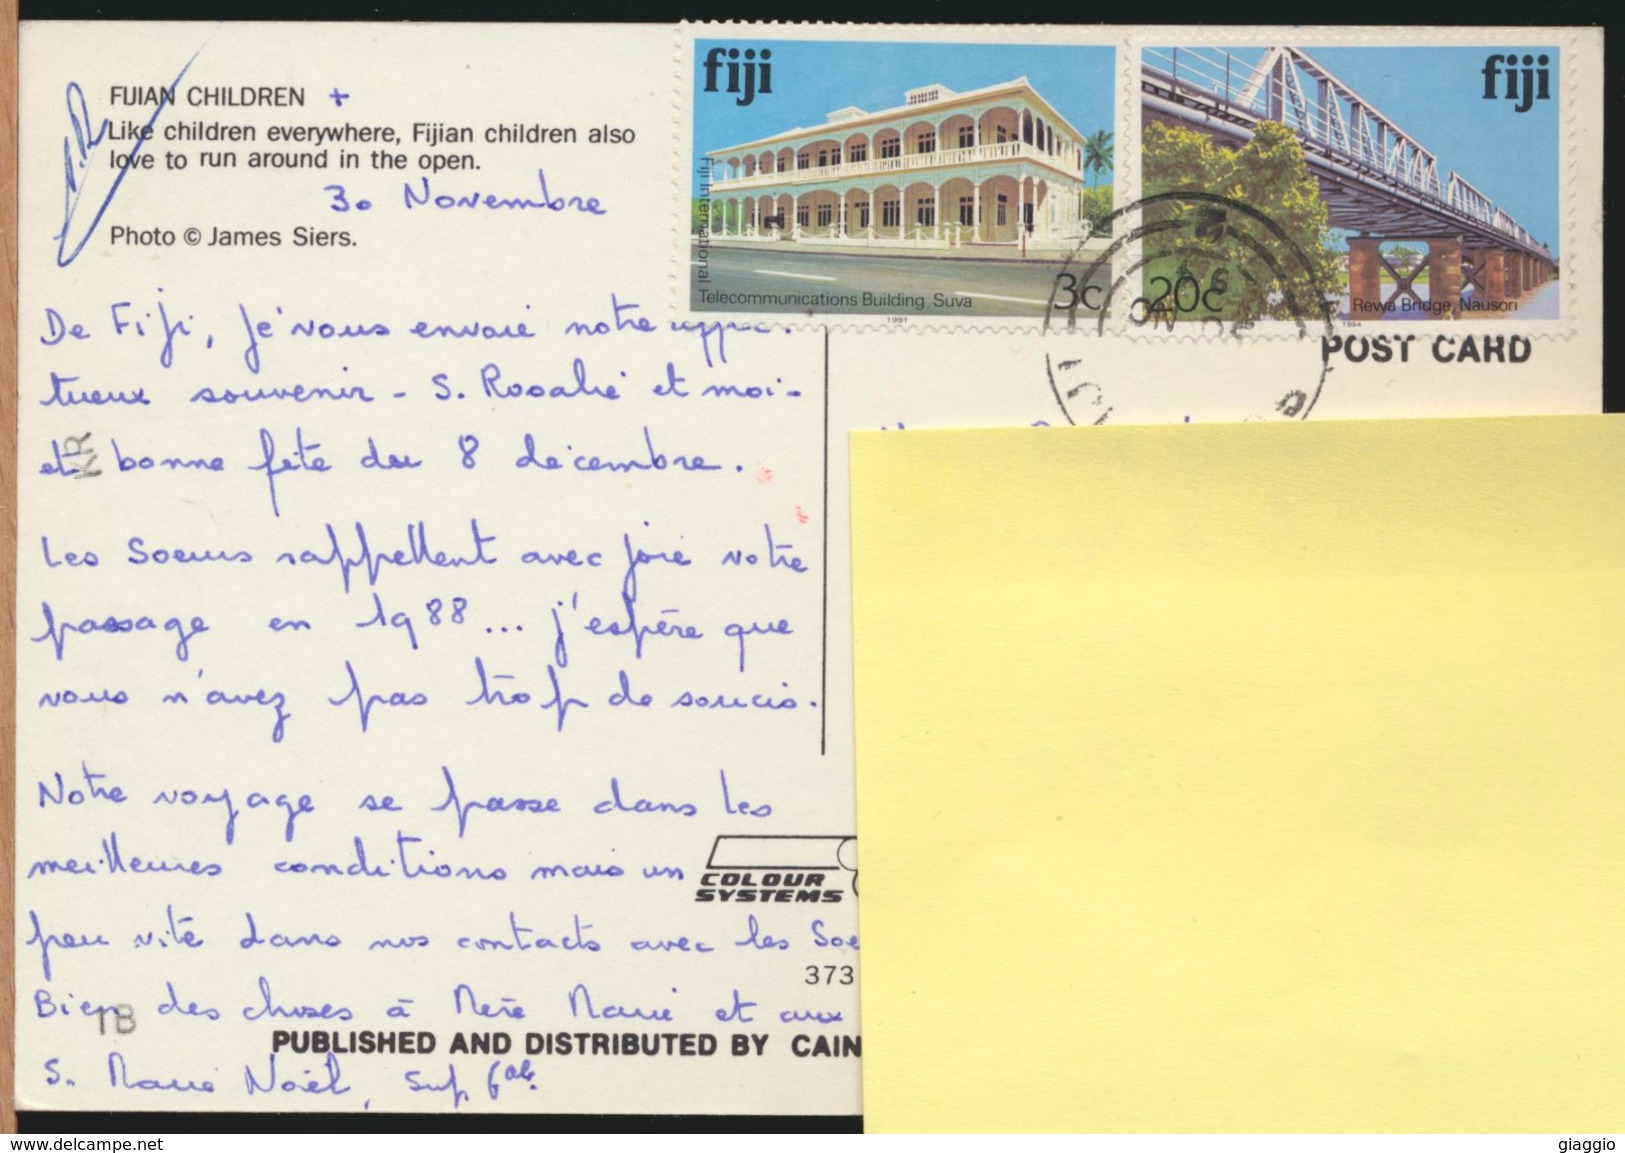 FIJIAN CHILDREN +
Like children everywhere, Fijian children also
love to run around in the open.
30 Novembre
Photo © James Siers.
fiji
Fiji International
Telecommunications Building, Suva
3c
1991
fiji
20c
Rewa Bridge, Nausori
1994
POST CARD
De Fiji, je vous envoie notre
tueux souvenir - S. Rosalie et moi -
et bonne fête du 8 décembre.
KR
Les Soeurs rappellent avec joie votre
passage en 1988... j'espère que
vous n'avez pas trop de soucis.
Notre voyage se passe dans les
meilleures conditions mais un
COLOUR
SYSTEMS
peu vite dans nos contacts avec les Soe
373
Bien des choses à Mère Marie et aux
TB
PUBLISHED AND DISTRIBUTED BY CAIN
S. Marie Noël, Sup. Gale.
www.delcampe.net
giaggio